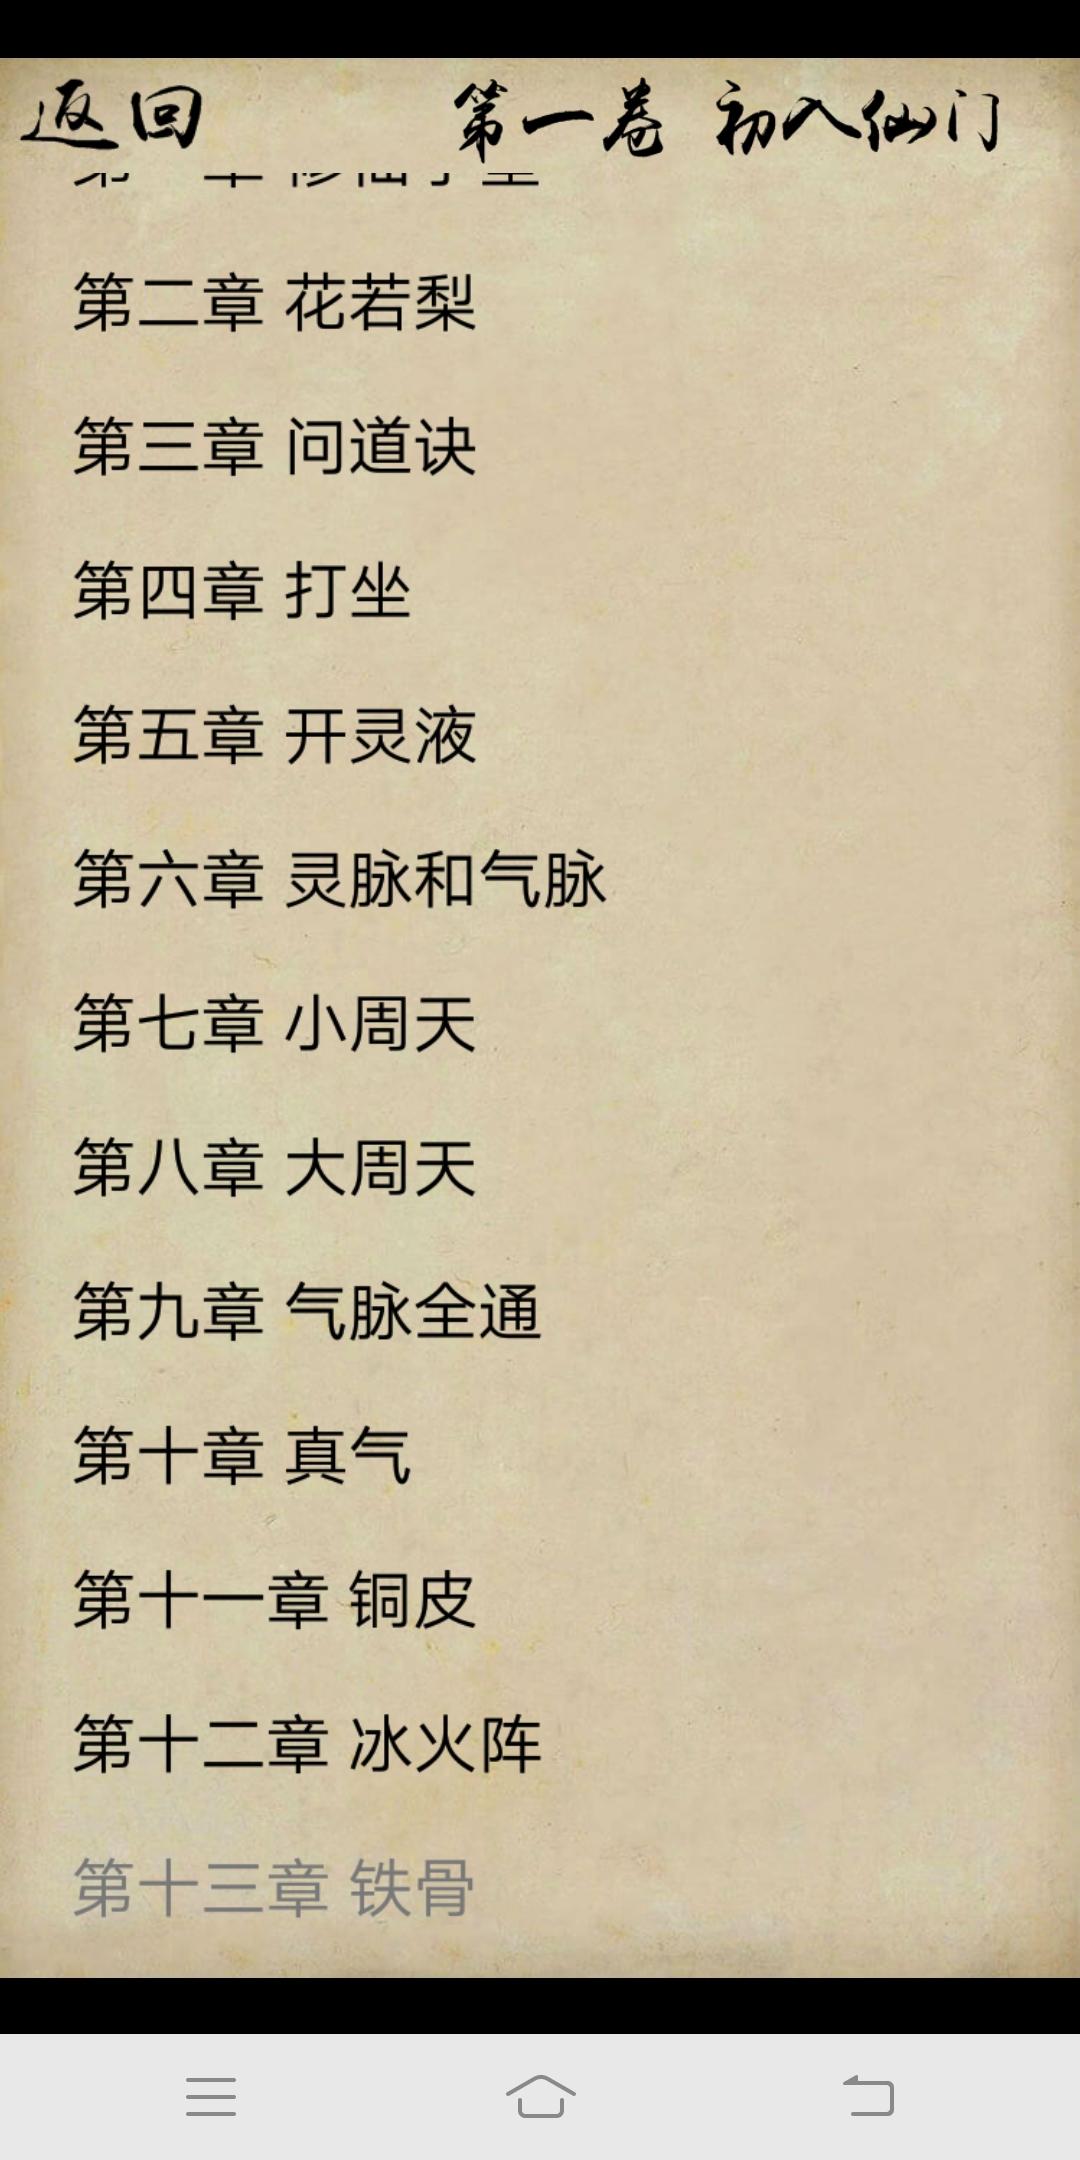 返回 第一卷 初入仙门
第二章 花若梨
第三章 问道诀
第四章 打坐
第五章 开灵液
第六章 灵脉和气脉
第七章 小周天
第八章 大周天
第九章 气脉全通
第十章 真气
第十一章 铜皮
第十二章 冰火阵
第十三章 铁骨